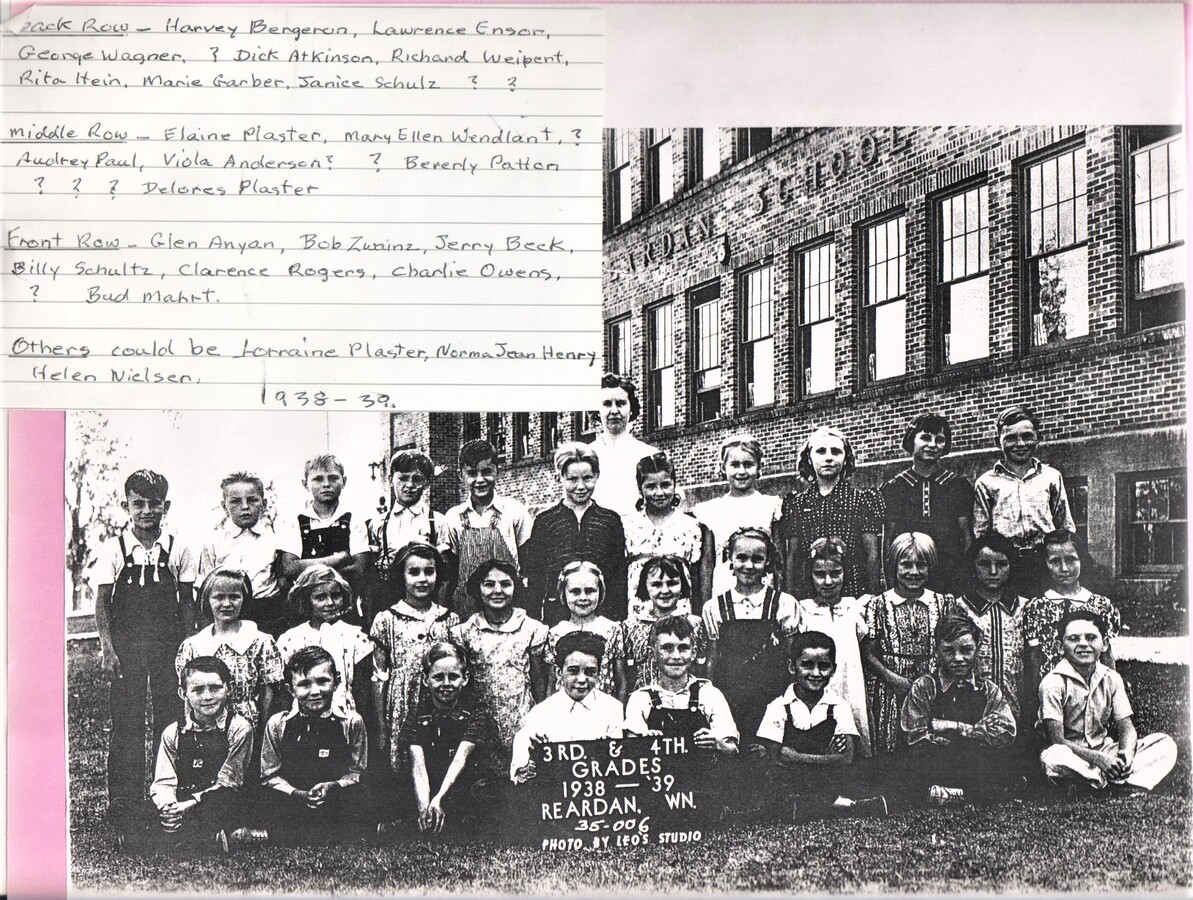 Back Row - Harvey Bergeron, Lawrence Ensor,
George Wagner, ? Dick Atkinson, Richard Weipert,
Rita Hein, Marie Garber, Janice Schulz ? ?
Middle Row - Elaine Plaster, Mary Ellen Wendlant, ?
Audrey Paul, Viola Anderson? ? Beverly Patton
? ? ? Delores Plaster
Front Row - Glen Anyan, Bob Zuninz, Jerry Beck,
Billy Schultz, Clarence Rogers, Charlie Owens,
? Bud Mahrt.
Others could be Lorraine Plaster, Norma Jean Henry
Helen Nielsen.
1938-39.
SCHOOL
3RD. & 4TH.
GRADES
1938 — 39
REARDAN, WN.
35-006
PHOTO BY LEO'S STUDIO